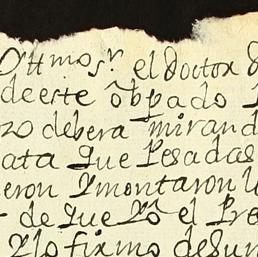 Yttmo sr el doctor d
de este obpado
zo debera mirand
ata que pesadas
eron y montaron l
de que yo el Pre
y lo firmo de su